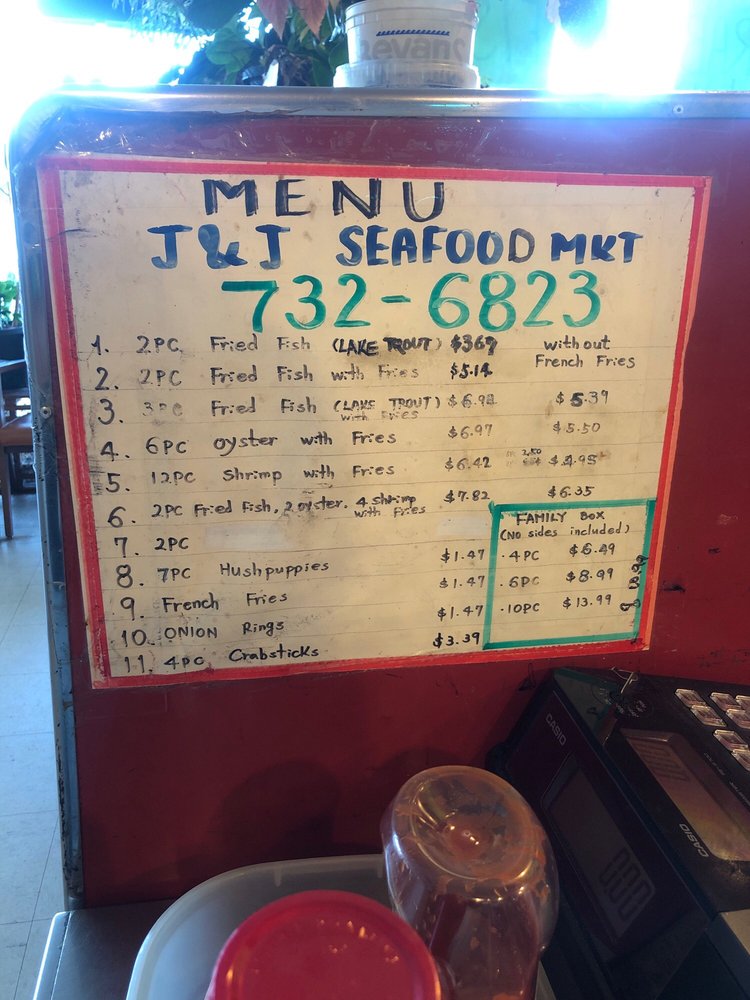 evans
MENU
J & J SEAFOOD MKT
732-6823
1. 2PC Fried Fish (LAKE TROUT) $3.69 without French Fries
2. 2PC Fried Fish with Fries $5.14
3. 3PC Fried Fish (LAKE TROUT) with Fries $6.98 $5.39
4. 6PC oyster with Fries $6.97 $5.50
5. 12PC Shrimp with Fries $6.42 $4.95
6. 2PC Fried Fish, 2 oyster, 4 shrimp with Fries $7.82 $6.35
7. 2PC
8. 7PC Hushpuppies $1.47
9. French Fries $1.47
10. ONION Rings $1.47
11. 4PC Crabsticks $3.39
FAMILY BOX
(No sides included)
· 4PC $6.49
· 6PC $8.99
· 10PC $13.99
CASIO
CASIO